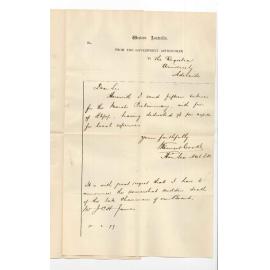 Western Australia.
No.
FROM THE GOVERNMENT ASTRONOMER
To the Registrar
University
Adelaide
Dear Sir
Herewith I send fifteen entries
for the March Preliminary, with fees
of having deducted for
for local expenses
Yours faithfully
Ernest Cooke
Hon Sec
It is with great regret that I have to
announce the somewhat sudden death
of the late Chairman of our Board,
Mr J.C.H. James